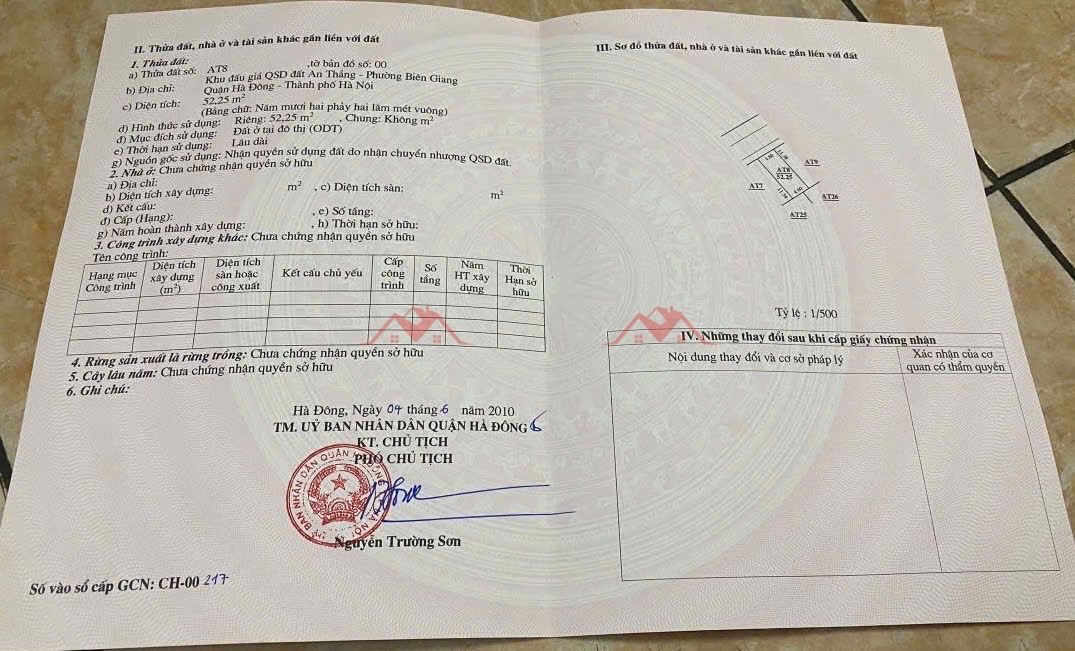 II. Thửa đất, nhà ở và tài sản khác gắn liền với đất
1. Thửa đất:
a) Thửa đất số: AT8 ,tờ bản đồ số: 00
b) Địa chỉ: Khu đấu giá QSD đất An Thắng - Phường Biên Giang
Quận Hà Đông - Thành phố Hà Nội
c) Diện tích: 52,25 m²
(Bằng chữ: Năm mươi hai phảy hai lăm mét vuông)
d) Hình thức sử dụng: Riêng: 52,25 m² , Chung: Không m²
đ) Mục đích sử dụng: Đất ở tại đô thị (ODT)
e) Thời hạn sử dụng: Lâu dài
g) Nguồn gốc sử dụng: Nhận quyền sử dụng đất do nhận chuyển nhượng QSD đất.
2. Nhà ở: Chưa chứng nhận quyền sở hữu
a) Địa chỉ:
b) Diện tích xây dựng: m² , c) Diện tích sàn: m²
d) Kết cấu:
đ) Cấp (Hạng): , e) Số tầng:
g) Năm hoàn thành xây dựng: , h) Thời hạn sở hữu:
3. Công trình xây dựng khác: Chưa chứng nhận quyền sở hữu
Tên công trình:
Hạng mục Công trình
Diện tích xây dựng (m²)
Diện tích sàn hoặc công xuất
Kết cấu chủ yếu
Cấp công trình
Số tầng
Năm HT xây dựng
Thời Hạn sở hữu
4. Rừng sản xuất là rừng trồng: Chưa chứng nhận quyền sở hữu
5. Cây lâu năm: Chưa chứng nhận quyền sở hữu
6. Ghi chú:
Hà Đông, Ngày 04 tháng 6 năm 2010
TM. UỶ BAN NHÂN DÂN QUẬN HÀ ĐÔNG
KT. CHỦ TỊCH
PHÓ CHỦ TỊCH
Nguyễn Trường Sơn
Số vào sổ cấp GCN: CH-00 217
III. Sơ đồ thửa đất, nhà ở và tài sản khác gắn liền với đất
AT9
AT8
52.25
AT7
AT26
AT25
Tỷ lệ : 1/500
IV. Những thay đổi sau khi cấp giấy chứng nhận
Nội dung thay đổi và cơ sở pháp lý
Xác nhận của cơ quan có thẩm quyền